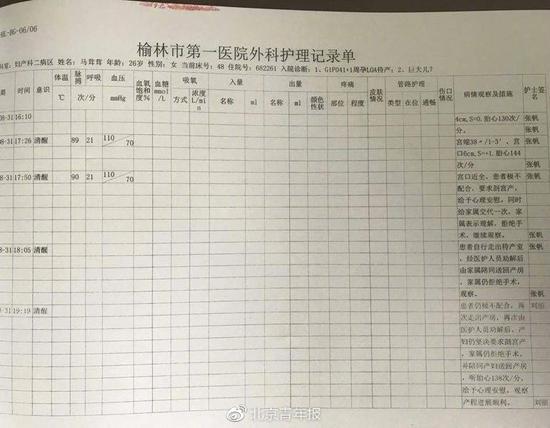 HL-BG-06/06
榆林市第一医院外科护理记录单
科室：妇产科二病区 姓名：马茸茸 年龄：26岁 性别：女 当前床号：48 住院号：682261 入院诊断：1、G1P041+1周孕LOA待产；2、巨大儿？
时间 意识 体温 脉搏 呼吸 血压 血氧饱和度% 血糖mmol/L 吸氧 入量 出量 疼痛 皮肤情况 管路护理 伤口情况 病情观察及措施 护士签名
℃ 次/分 mmHg 方式 浓度L/min 名称 ml 名称 ml 颜色性状 部位 程度 类型 在位 通畅
08-31 16:10 4cm,S=0,胎心130次/ 张帆
分。
08-31 17:26 清醒 89 21 110/70 宫缩38〃/1-3′，宫 张帆
口6cm,S=+1,胎心144
次/分
08-31 17:50 清醒 90 21 110/70 宫口近全，患者极不 张帆
配合，要求剖宫产，
给予心理安慰，同时
给家属交代一次，家
属表示理解，拒绝手
术，继续观察。 张帆
08-31 18:05 清醒 患者自行走出待产室
，经医护人员劝解后
由家属陪同送回产房
，家属仍拒绝手术，
观察。 张帆
08-31 19:19 清醒 患者仍极不配合，再 刘丽
次走出产房，再次由
医护人员劝解后，产
妇仍坚决要求剖宫产
，家属仍拒绝手术，
补陪同产妇送回产房
，听胎心138次/分，
给予心理安慰，观察
产程进展顺利。 刘丽
@北京青年报